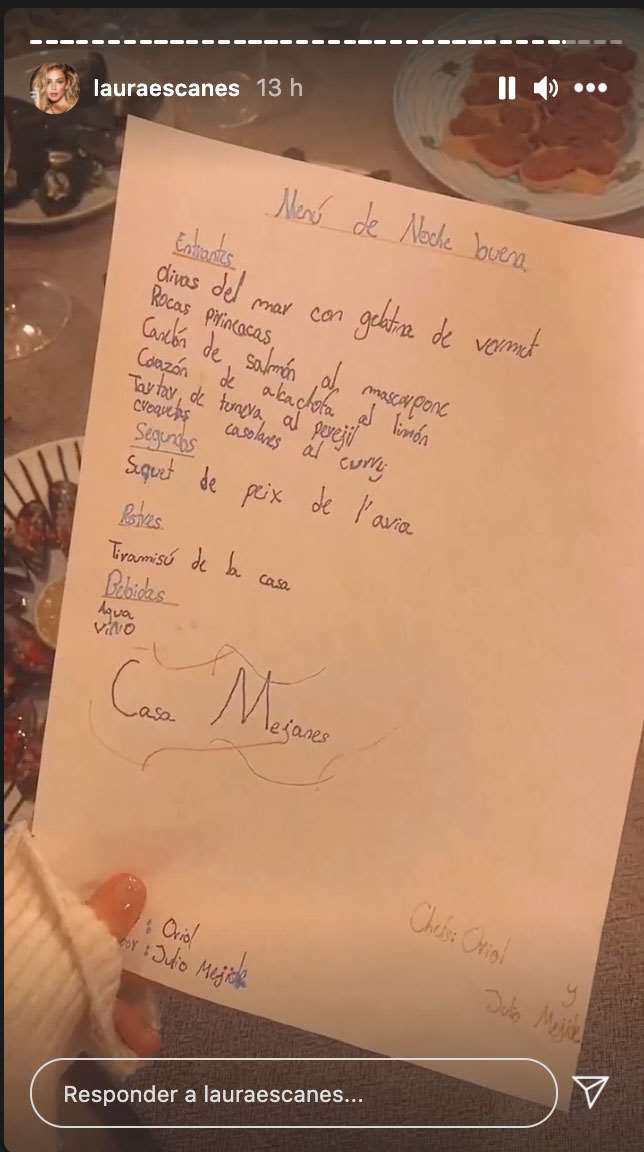 lauraescanes 13 h
Menú de Noche buena
Entrantes
olivas del mar con gelatina de vermut
Rocas pirincacas
Canelón de salmón al mascarpone
Corazón de alcachofa al limón
Tartar de ternera al perejil
croquetas casolanes al curry
Segundos
Suquet de peix de l'avia
Postres
Tiramisú de la casa
Bebidas
Agua
VINO
Casa Mejanes
: Oriol
or : Julio Mejide
Chefs: Oriol
y
Julio Mejide
Responder a lauraescanes...